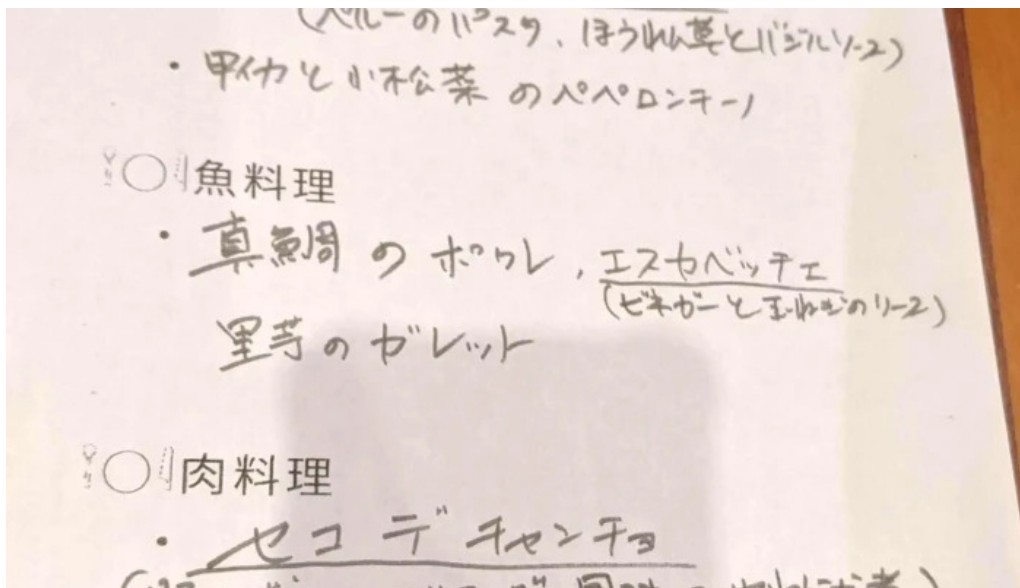 (ペルーのパスタ、ほうれん草とバジルソース)
・甲イカと小松菜のペペロンチーノ
魚料理
・真鯛のポワレ、エスカベッチェ
(ビネガーと玉ねぎのソース)
里芋のガレット
肉料理
・セコ デ チャンチョ